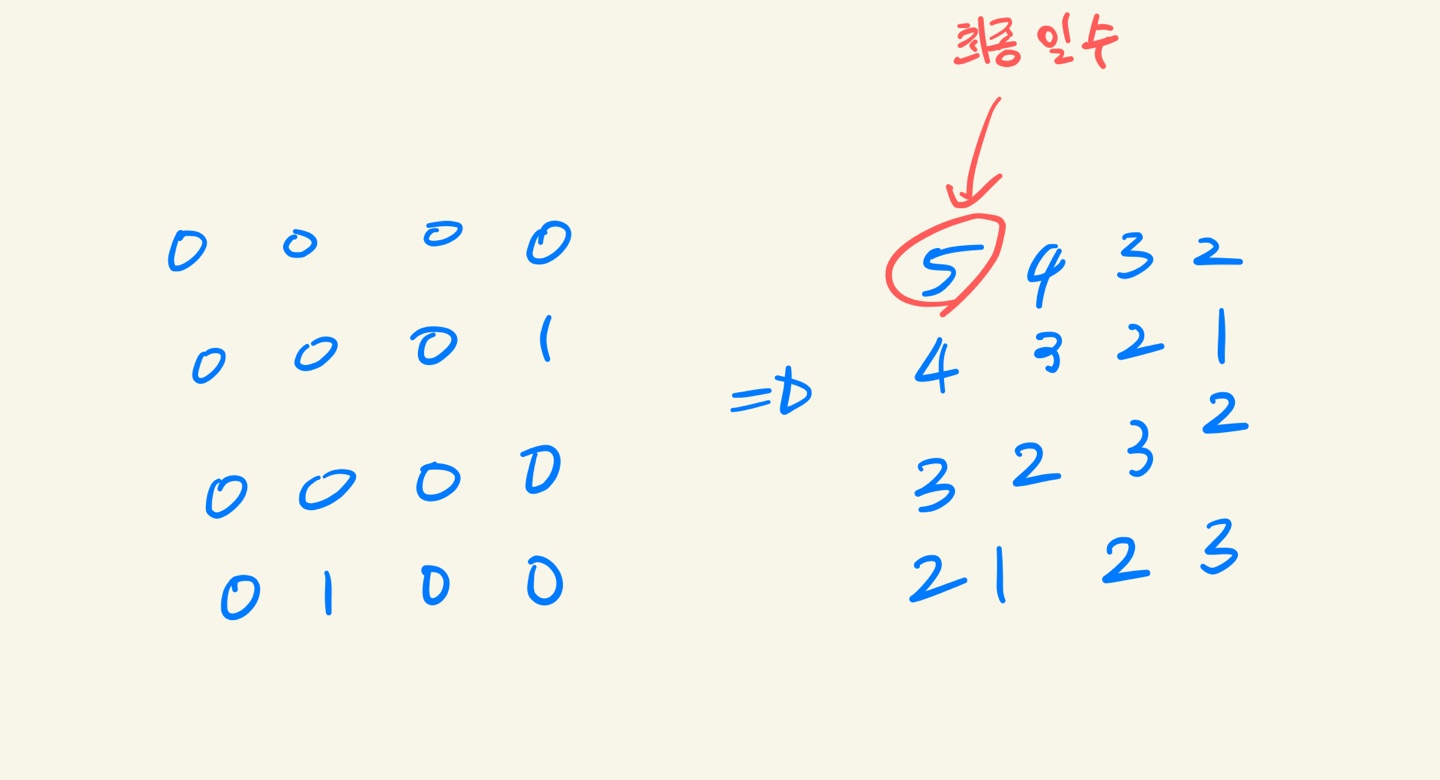 최종 일수
0 0 0 0
0 0 0 1
0 0 0 0
0 1 0 0
=D
5 4 3 2
4 3 2 1
3 2 3 2
2 1 2 3